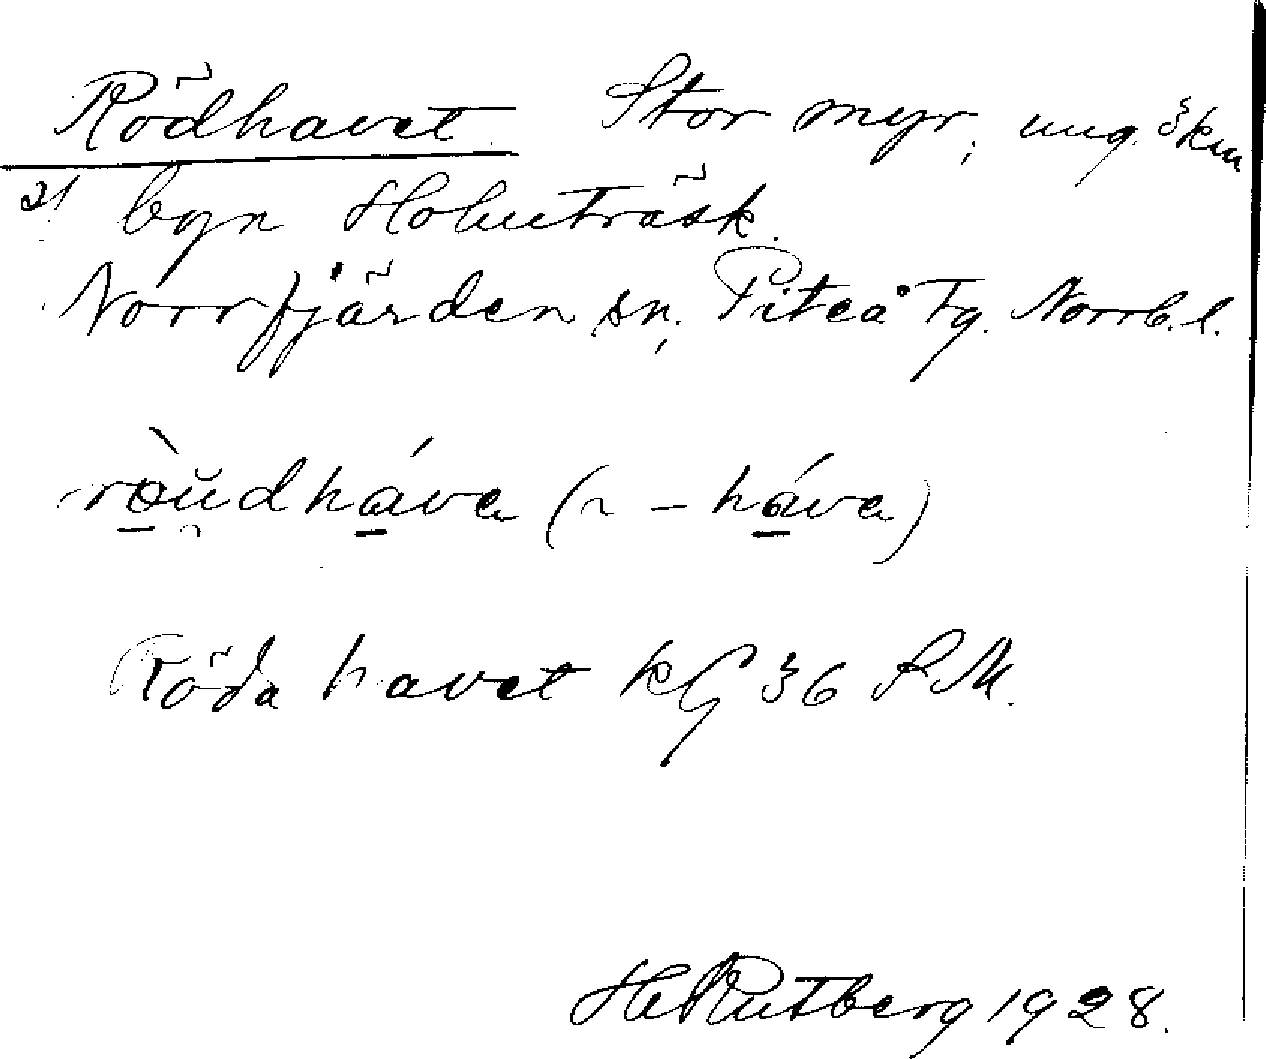 Rödhavet. Stor myr, ung. 3 km
byn Holmträsk.
Norrfjärden sn, Piteå tg. Norrb. l.
ro̲ùŭdhá̲va (~ - há̲va)
Röda havet kG 36 S.M.
H Rutberg 1928.